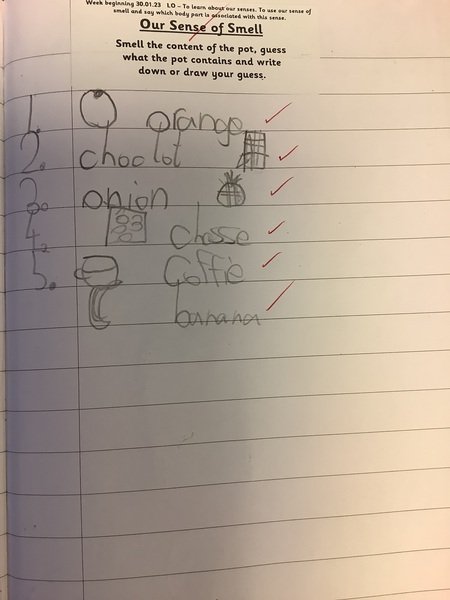 Week beginning 30.01.23 LO – To learn about our senses. To use our sense of
smell and say which body part is associated with this sense.
Our Sense of Smell
Smell the content of the pot, guess
what the pot contains and write
down or draw your guess.
1. orange
2. choolot
3. onion
4. chesse
5. Coffie
banana